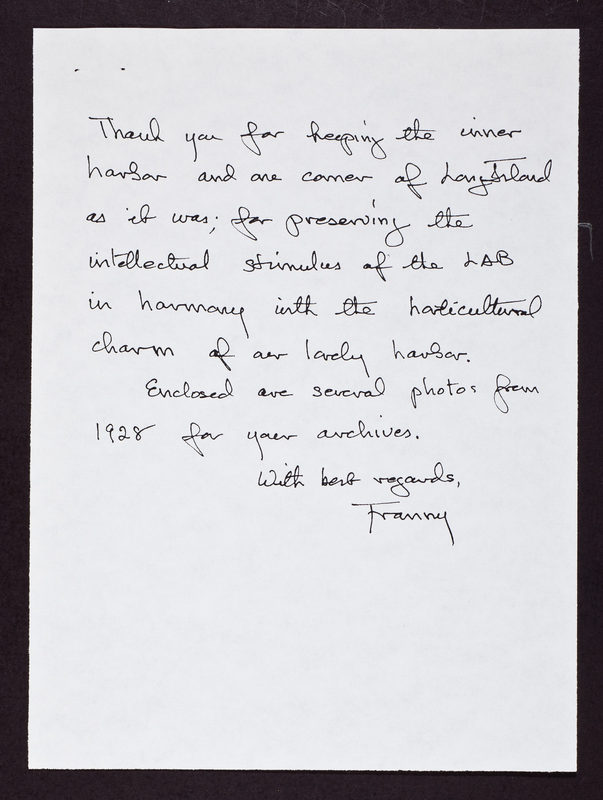 Thank you for keeping the inner
harbor and one corner of Long Island
as it was; for preserving the
intellectual stimulus of the LAB
in harmony with the horticultural
charm of our lovely harbor.
Enclosed are several photos from
1928 for your archives.
With best regards,
Franny